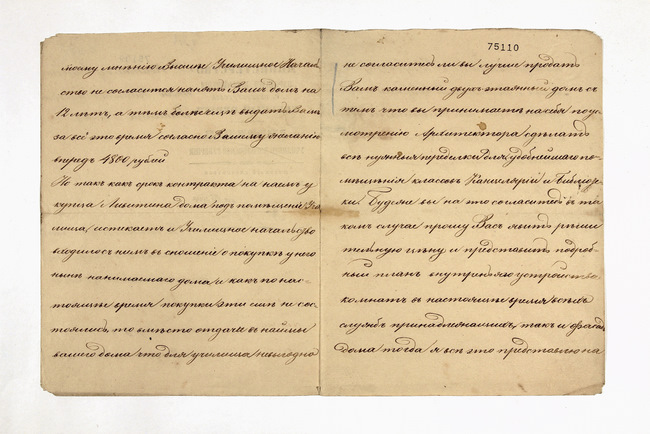 моему мнѣнію Высшее Училищное Началь
ство не согласится нанять Вашъ домъ на
12 лѣтъ, а тѣмъ болѣе выдать Вамъ
за всё это время согласно Вашему желанію
впередъ 4800 рублей
Но такъ какъ срокъ контракта на наемъ у
купца Никитина дома подъ помѣщеніе Учи
лища, истекаетъ и Училищное начальство
входило съ нимъ въ сношеніе о покупкѣ у него
нынѣ нанимаемаго дома, и какъ по нас-
тоящее время покупка эта еще не сос-
тоялась, то вмѣсто отдачи въ наймы
вашего дома, что для училища невыгодно
75110
не согласитесь ли вы лучше продать
Вашъ каменный двухъ этажный домъ съ
тѣмъ что вы принимаете на себя по ус
мотрѣнію Архитектора сдѣлать
всѣ нужныя передѣлки для удобнѣйшаго по-
мѣщенія классовъ Канцеляріи и Библіоте-
ки. Будьде вы на то согласитесь въ та
комъ случаѣ прошу Васъ явить рѣши
тельную цѣну и представить подроб-
ный планъ внутренняго устройства
комнатъ въ настоящее время всѣхъ
службъ принадлежащихъ, такъ и фасадъ
дома тогда я всё это представлю на